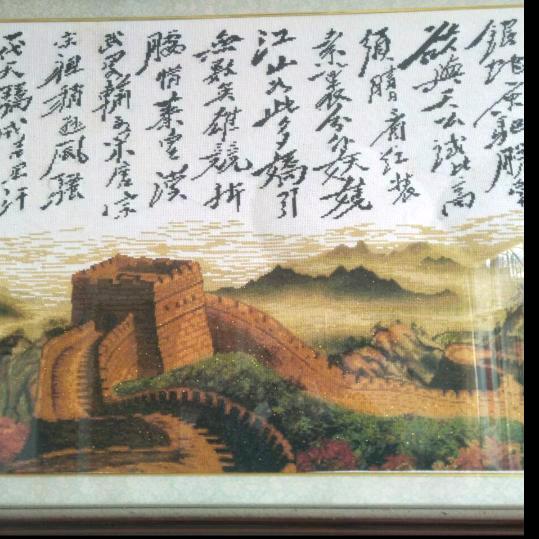 銀蛇原馳臘象
欲與天公試比高
須晴日看红装
素裹分外妖嬈
江山如此多嬌引
無數英雄競折
腰惜秦皇漢
武略輸文采唐宗
宋祖稍遜風騷
一代天驕成吉思汗